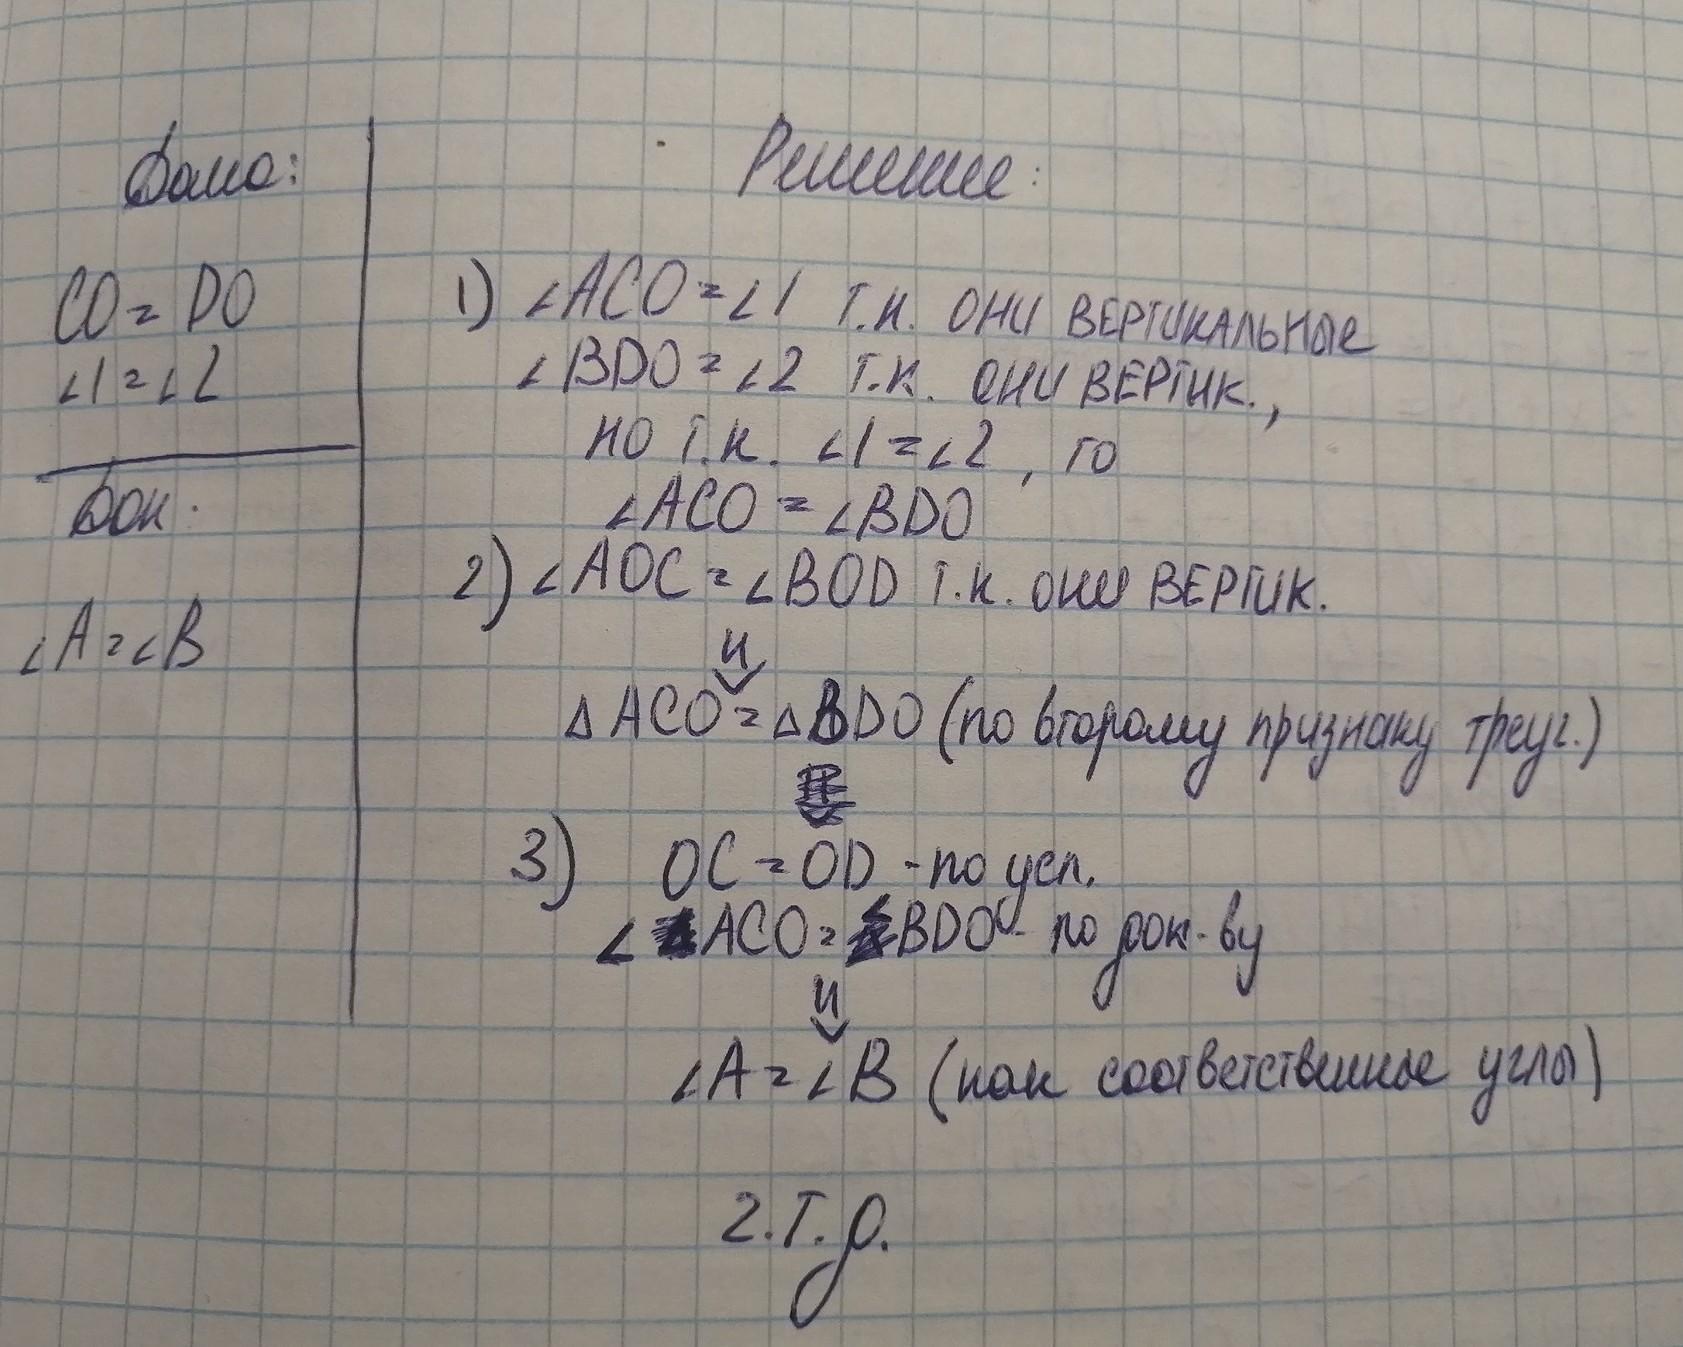 Дано:
CO = DO
∠1 = ∠2
Док.
∠A = ∠B
Решение:
1) ∠ACO = ∠1 т.к. они вертикальные
∠BDO = ∠2 т.к. они вертик.,
но т.к. ∠1 = ∠2, то
∠ACO = ∠BDO
2) ∠AOC = ∠BOD т.к. они вертик.
⇓
△ACO = △BDO (по второму признаку треуг.)
3) OC = OD - по усл.
∠ACO = ∠BDO - по док-ву
⇓
∠A = ∠B (как соответственные углы)
Ч.Т.Д.